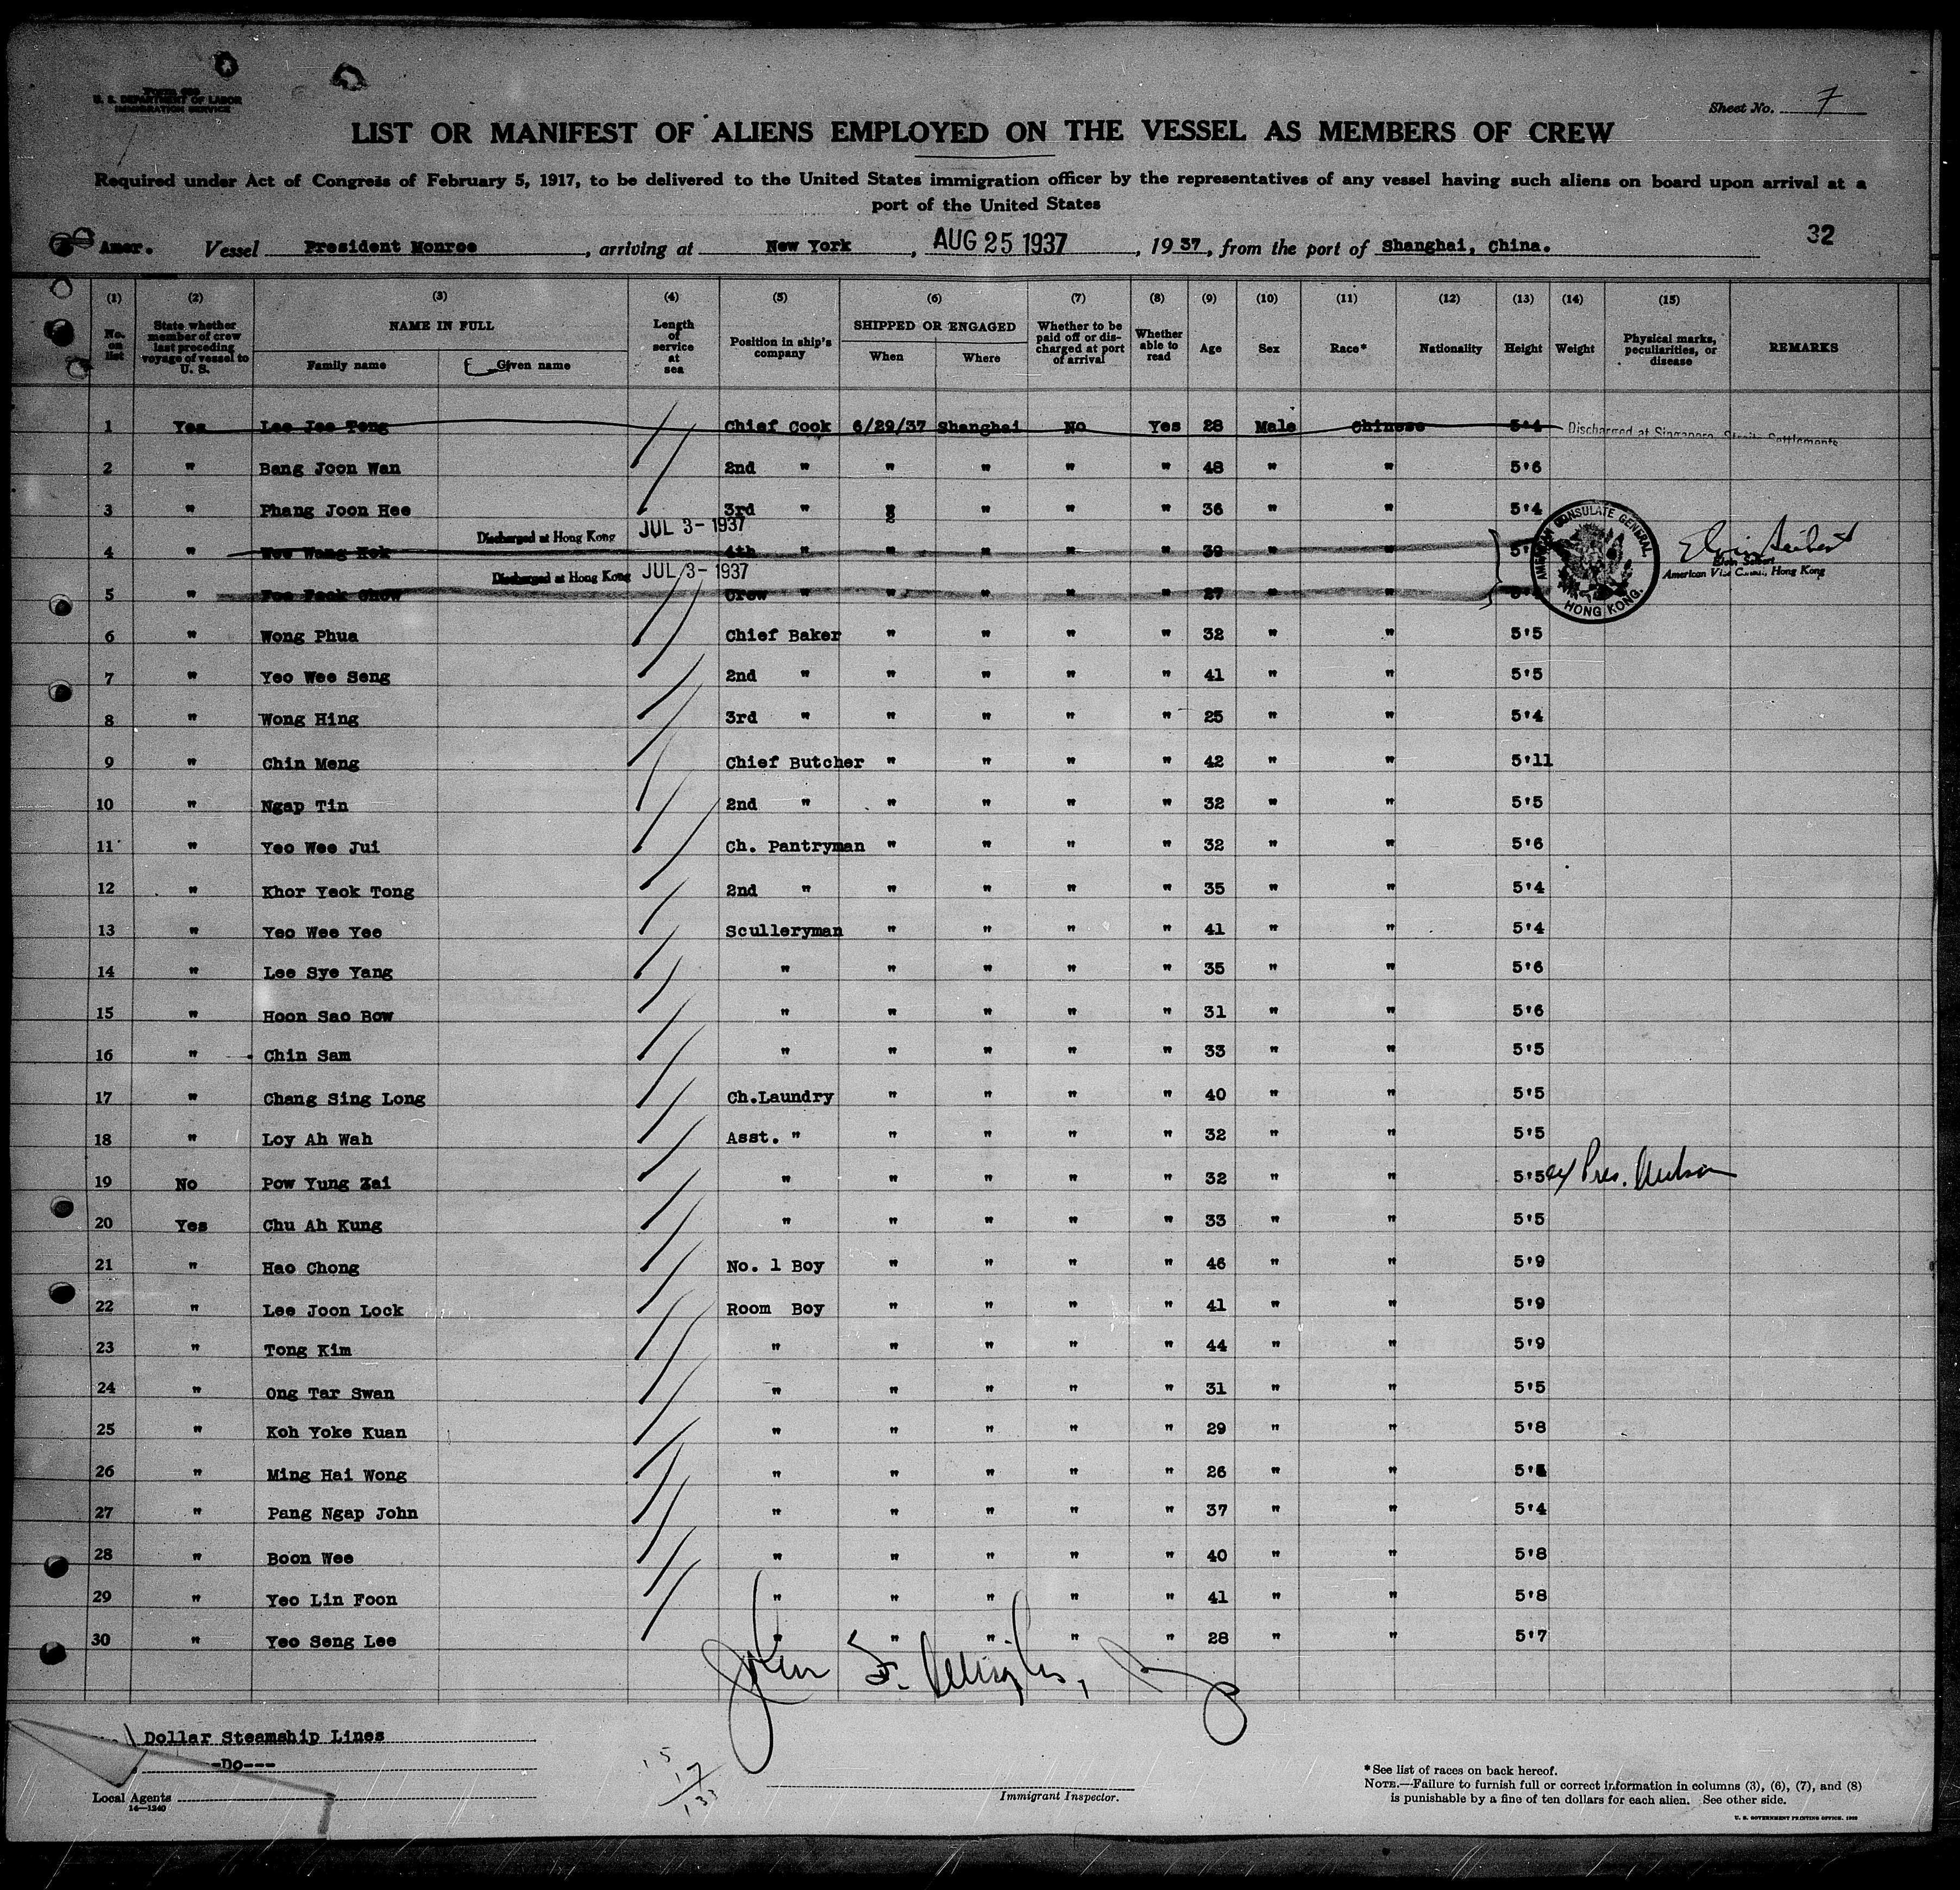 Form 689
U. S. DEPARTMENT OF LABOR
IMMIGRATION SERVICE
Sheet No. 7
LIST OR MANIFEST OF ALIENS EMPLOYED ON THE VESSEL AS MEMBERS OF CREW
Required under Act of Congress of February 5, 1917, to be delivered to the United States immigration officer by the representatives of any vessel having such aliens on board upon arrival at a
port of the United States
32
Amer. Vessel President Monroe, arriving at New York, AUG 25 1937, 1937, from the port of Shanghai, China.
(1) (2) (3) (4) (5) (6) (7) (8) (9) (10) (11) (12) (13) (14) (15)
No. on list State whether member of crew last preceding voyage of vessel to U. S. NAME IN FULL Family name Given name Length of service at sea Position in ship's company SHIPPED OR ENGAGED When Where Whether to be paid off or discharged at port of arrival Whether able to read Age Sex Race* Nationality Height Weight Physical marks, peculiarities, or disease REMARKS
1 Yes Lee Jee Tong Chief Cook 6/29/37 Shanghai No Yes 28 Male Chinese 5'4 Discharged at Singapore, Straits Settlements
2 " Bang Joon Wan 2nd " " " " " 48 " " 5'6
3 " Phang Joon Hee 3rd " " " " " 36 " " 5'4
Discharged at Hong Kong JUL 3- 1937
4 " Wee Wang Hok 4th " " " " " 39 " " 5'
Discharged at Hong Kong JUL 3- 1937
5 " Foo Fack Chow Crew " " " " " 27 " " 5'
AMERICAN CONSULATE GENERAL. HONG KONG.
Elvin Seibert
Elvin Seibert
American Vice Consul, Hong Kong
6 " Wong Phua Chief Baker " " " " 32 " " 5'5
7 " Yeo Wee Seng 2nd " " " " " 41 " " 5'5
8 " Wong Hing 3rd " " " " " 25 " " 5'4
9 " Chin Meng Chief Butcher " " " " 42 " " 5'11
10 " Ngap Tin 2nd " " " " " 32 " " 5'5
11 " Yeo Wee Jui Ch. Pantryman " " " " 32 " " 5'6
12 " Khor Yeok Tong 2nd " " " " " 35 " " 5'4
13 " Yeo Wee Yee Sculleryman " " " " 41 " " 5'4
14 " Lee Sye Yang " " " " " 35 " " 5'6
15 " Hoon Sao Bow " " " " " 31 " " 5'6
16 " Chin Sam " " " " " 33 " " 5'5
17 " Chang Sing Long Ch.Laundry " " " " 40 " " 5'5
18 " Loy Ah Wah Asst. " " " " " 32 " " 5'5
19 No Pow Yung Zai " " " " " 32 " " 5'5 ex Pres.
20 Yes Chu Ah Kung " " " " " 33 " " 5'5
21 " Hao Chong No. 1 Boy " " " " 46 " " 5'9
22 " Lee Joon Lock Room Boy " " " " 41 " " 5'9
23 " Tong Kim " " " " " 44 " " 5'9
24 " Ong Tar Swan " " " " " 31 " " 5'5
25 " Koh Yoke Kuan " " " " " 29 " " 5'8
26 " Ming Hai Wong " " " " " 26 " " 5'
27 " Pang Ngap John " " " " " 37 " " 5'4
28 " Boon Wee " " " " " 40 " " 5'8
29 " Yeo Lin Foon " " " " " 41 " " 5'8
30 " Yeo Seng Lee " " " " " 28 " " 5'7
John F.
Dollar Steamship Lines
-Do---
Local Agents
14—1240
15
17
Immigrant Inspector.
* See list of races on back hereof.
NOTE.—Failure to furnish full or correct information in columns (3), (6), (7), and (8)
is punishable by a fine of ten dollars for each alien. See other side.
U. S. GOVERNMENT PRINTING OFFICE